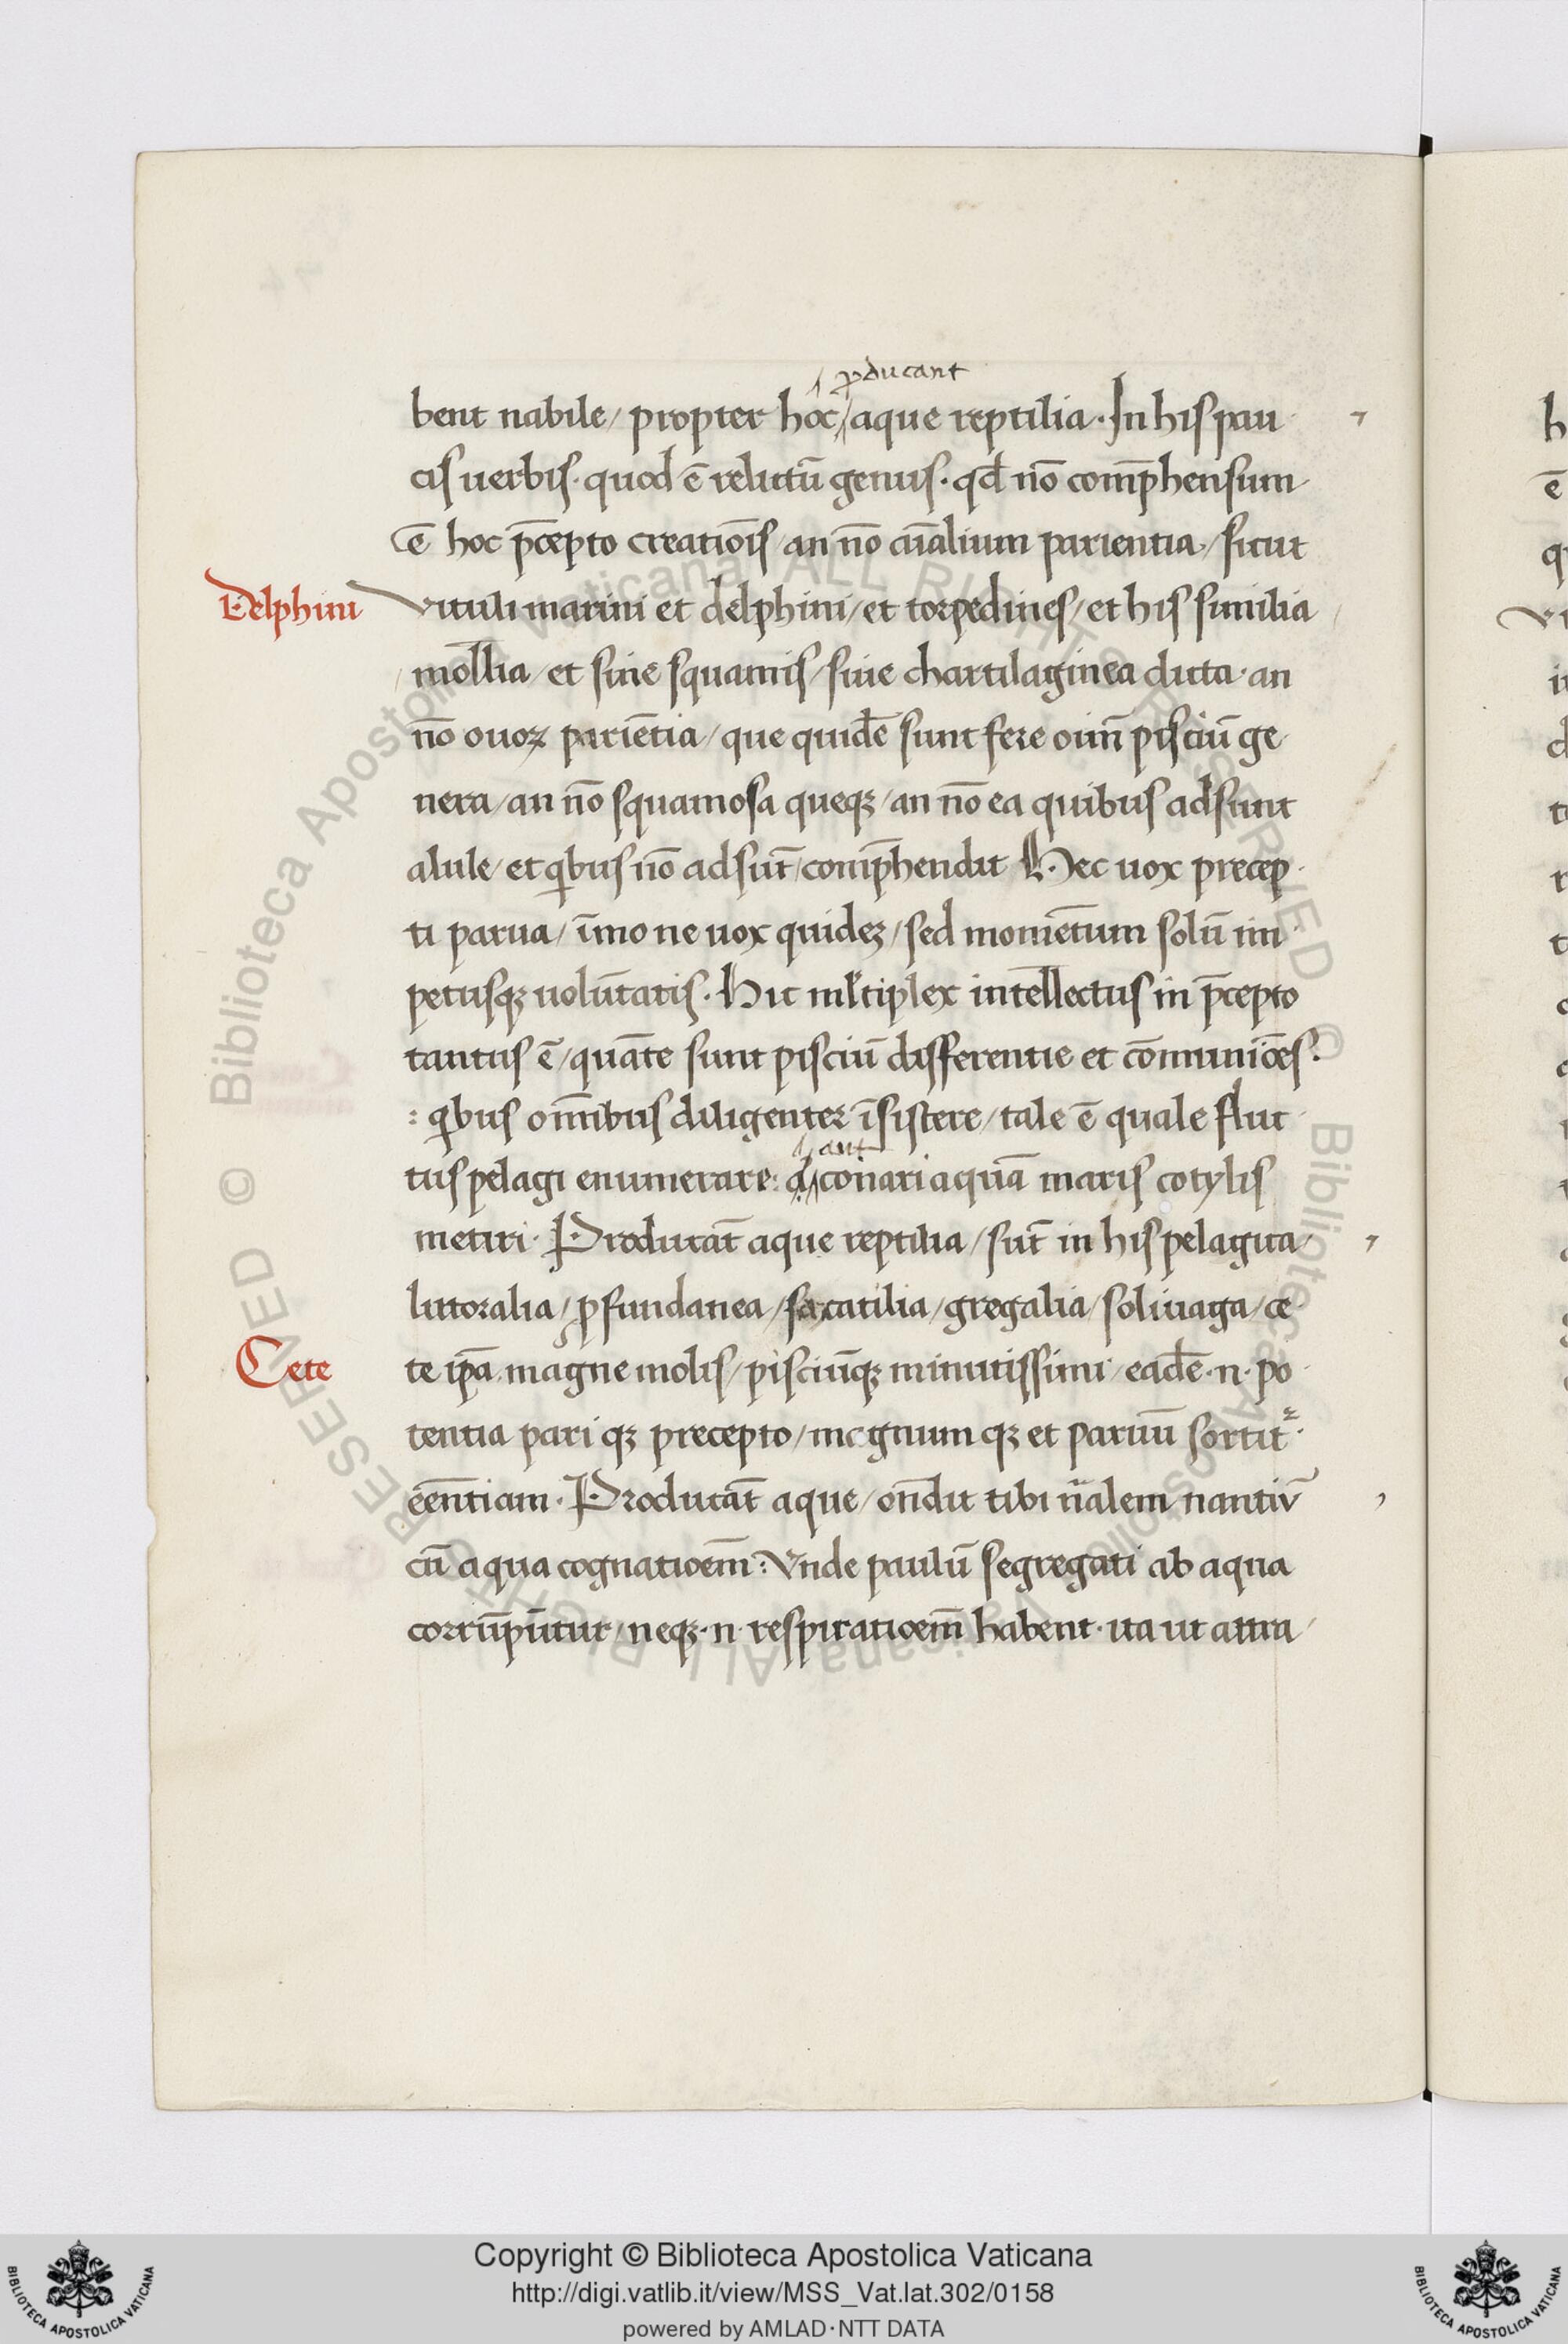 ꝓducant
bent nabile/ propter hoc/ aque reptilia · In his pau
cis uerbis · quod ē relictū genus · qđ nō comp̄hensum
ē hoc p̄cepto creatiōis/ an nō aīalium parientia/ sicut
Delphini
Vituli marini et delphini/ et torpedines/ et his similia
mollia/ et sine squamis/ siue chartilaginea dicta · an
nō ouoꝝ pariētia/ que quidē sunt fere oīm pisciū ge
nera/ an nō squamosa queqꝫ/ an nō ea quibus adsunt
alule/ et qibus nō adsūt/ comp̄hendit Hec uox precep
ti parua/ īmo ne uox quideꝫ/ sed momētum solū im
petusqꝫ uolūtatis · Hic mltiplex intellectus in p̄cepto
tantus ē/ quāte sunt pisciū differentie et cōmuniōes ·
: qibus omībus diligenter īsistere/ tale ē quale fluc
aut
tus pelagi enumerare: conari aquā maris cotylis
metiri · Producāt aque reptilia/ sūt in his pelagica
littoralia/ ꝓfundanea/ saxatilia/ gregalia/ soliuaga/ ce
Cete
te ipā magne molis/ pisciūqꝫ minutissimi/ eadē · n · po
tentia pari qꝫ precepto/ magnum qꝫ et paruū sortit᷑ ·
eēntiam · Producāt aque/ ondit tibi nālem nantiū
cū aqua cognatioēm: Vnde paulū segregati ab aqua
corrūpūtur/ neqꝫ · n · respiratioēm habent · ita ut attra
Copyright © Biblioteca Apostolica Vaticana
http://digi.vatlib.it/view/MSS_Vat.lat.302/0158
powered by AMLAD·NTT DATA